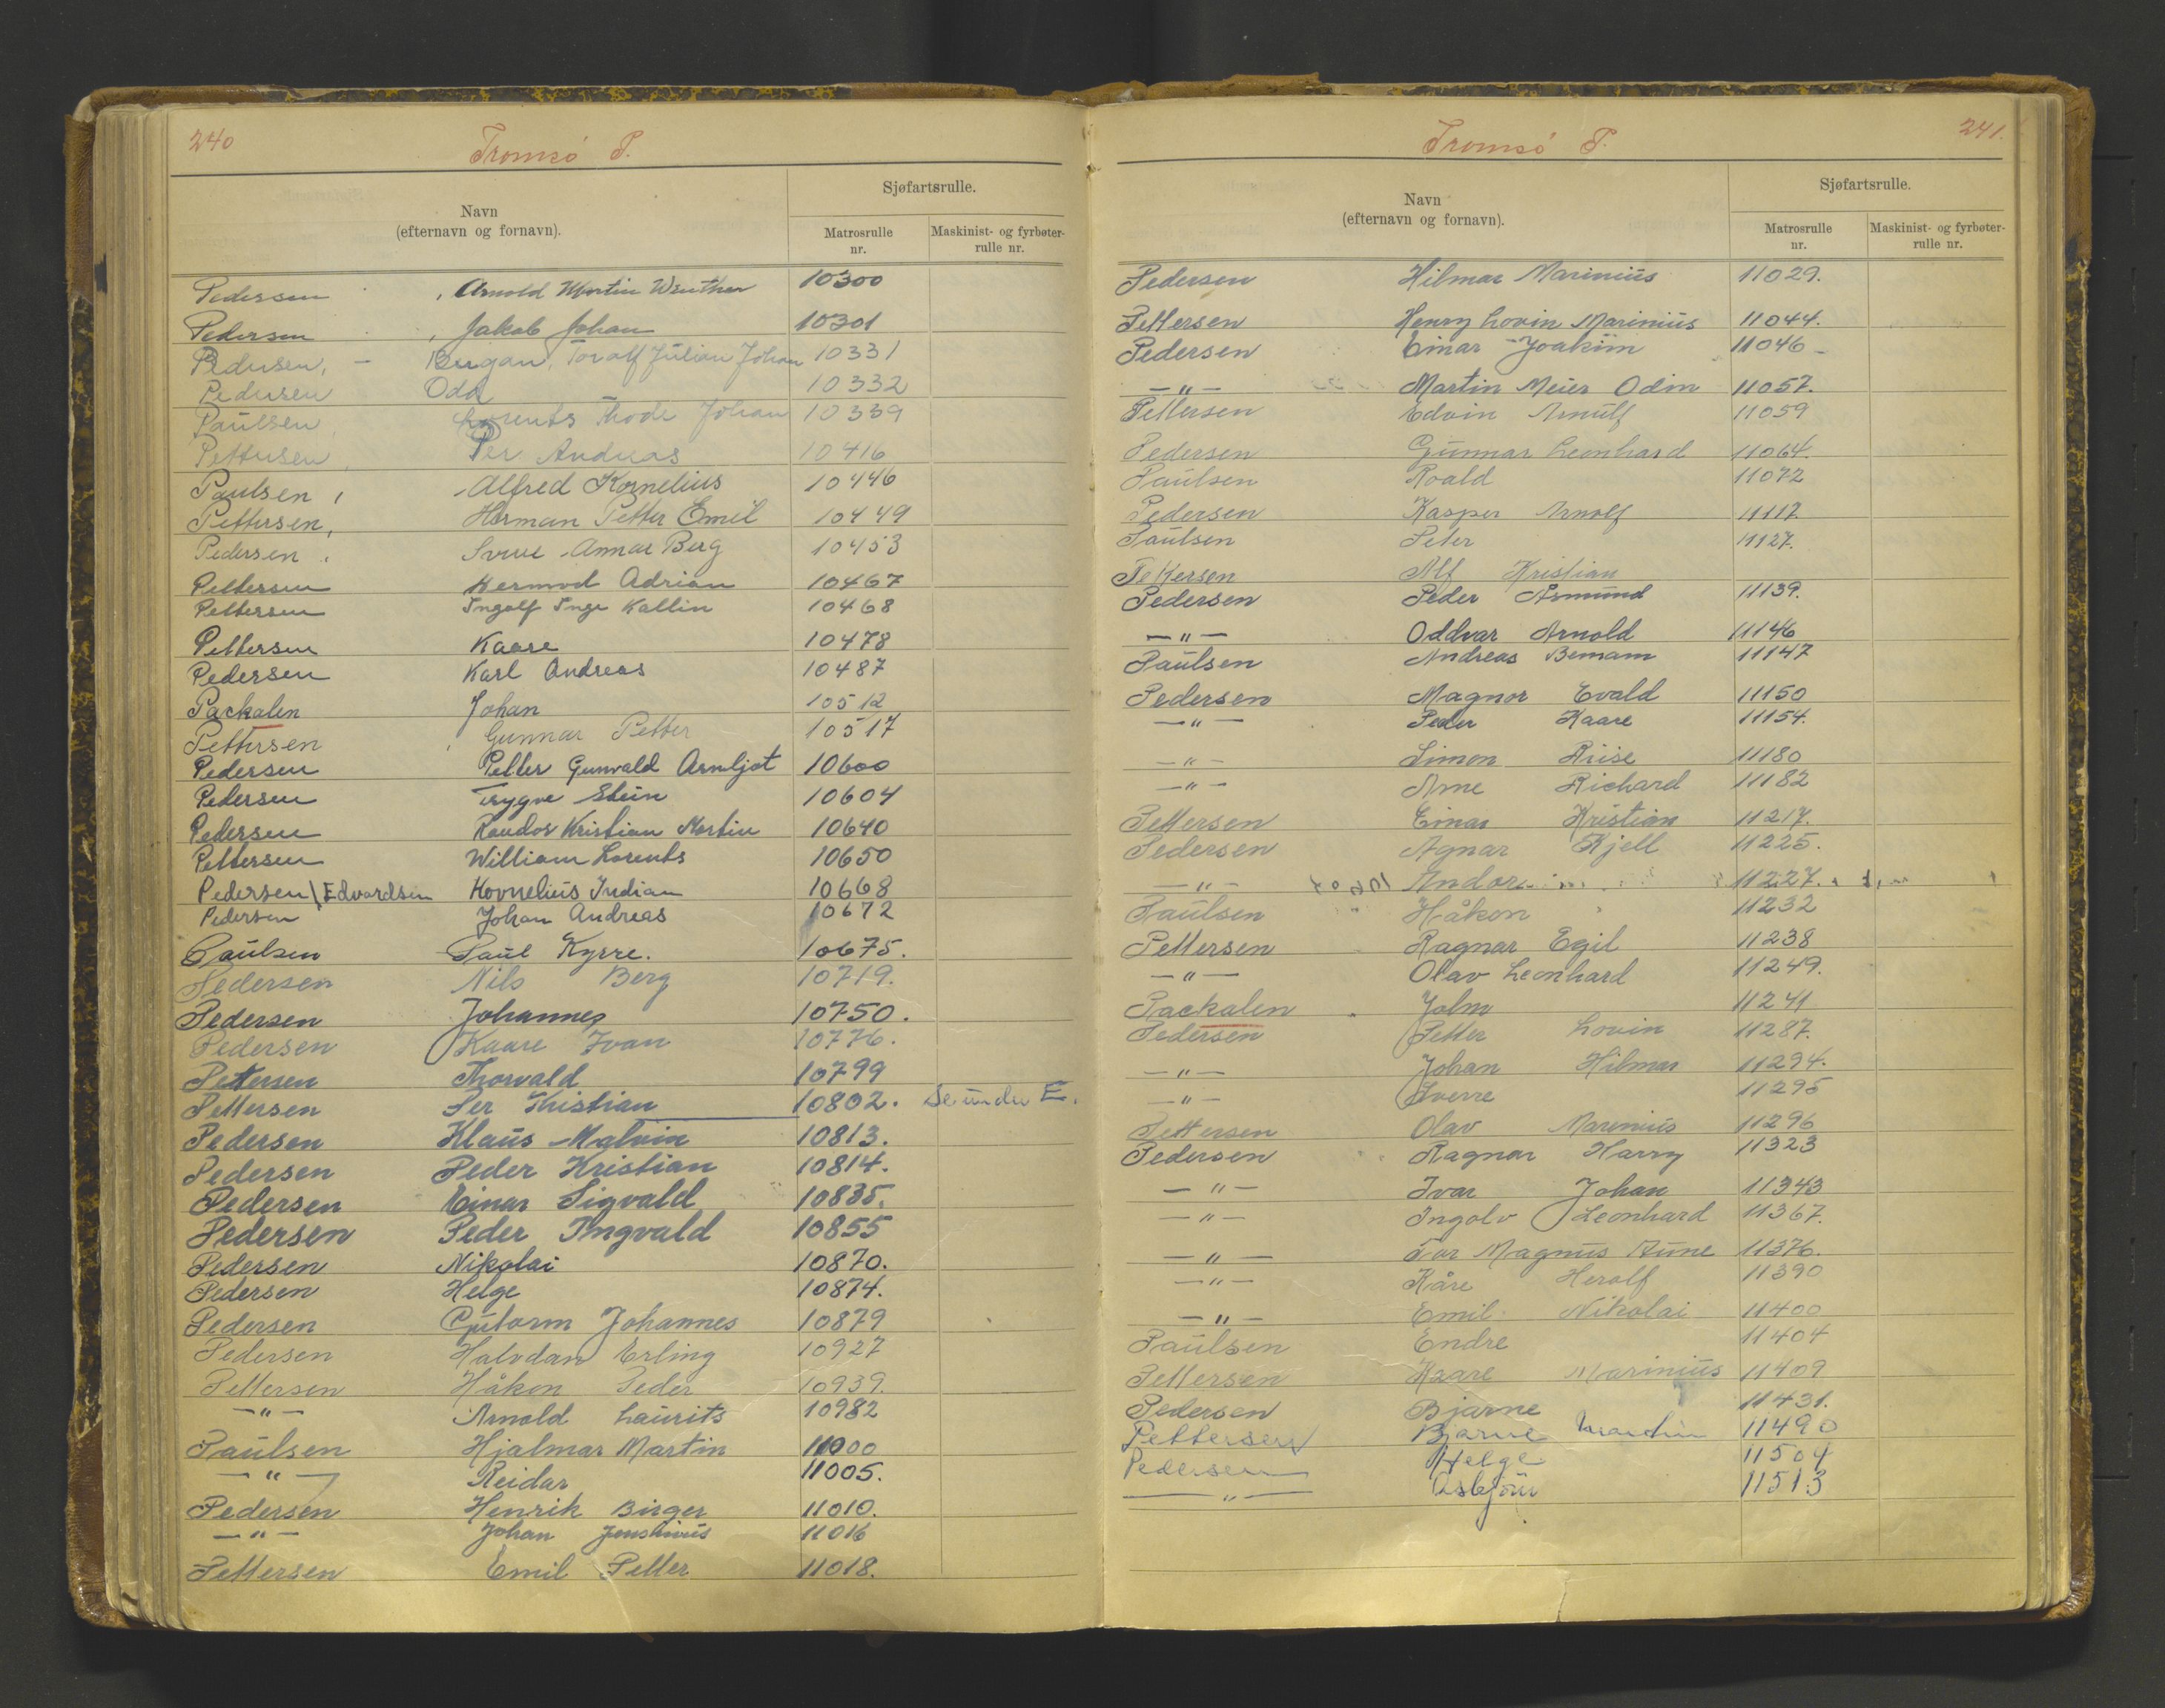 240
Tromsø P.
Navn
(efternavn og fornavn).
Sjøfartsrulle.
Matrosrulle nr.
Maskinist- og fyrbøter-rulle nr.
Pedersen , Arnold Martin Winther 10300
Pedersen , Jakob Johan 10301
Pedersen, - Bergan, Toralf Julian Johan 10331
Pedersen Odd 10332
Paulsen Lorents Thode Johan 10339
Pettersen, Per Andreas 10416
Paulsen, Alfred Kornelius 10446
Pettersen, Herman Petter Emil 10449
Pedersen, Sverre Annar Berg 10453
Pettersen Hermod Adrian 10467
Pettersen Ingolf Inge Kallin 10468
Pettersen Kaare 10478
Pedersen Karl Andreas 10487
Packalen Johan 10512
Pettersen , Gunnar Petter 10517
Pedersen Petter Gunvald Arnljot 10600
Pedersen Trygve Stein 10604
Pedersen Kristian Martin 10640
Pettersen William Lorents 10650
Pedersen \ Edvardsen Kornelius Indian 10668
Pedersen Johan Andreas 10672
Paulsen Paul Kyrre. 10675.
Pedersen Nils Berg 10719.
Pedersen Johannes 10750.
Pedersen Kaare Ivan 10776.
Pettersen Thorvald 10799
Pettersen Per Kristian 10802. Se under E.
Pedersen Klaus Malvin 10813.
Pedersen Peder Kristian 10814.
Pedersen Einar Sigvald 10835.
Pedersen Peder Ingvald 10855
Pedersen Nikolai 10870.
Pedersen Helge 10874.
Pedersen Gutorm Johannes 10879
Pedersen Halvdan Erling 10927
Pettersen Håkon Peder 10939.
— " — Arnold Laurits 10982
Paulsen Hjalmar Martin 11000
— " — Reidar 11005.
Pedersen Henrik Birger 11010.
— " — Johan 11016
Pettersen Emil Petter 11018.
241.
Tromsø P.
Navn
(efternavn og fornavn).
Sjøfartsrulle.
Matrosrulle nr.
Maskinist- og fyrbøter-rulle nr.
Pedersen Hilmar Marinius 11029.
Pettersen Henry Lovin Marinius 11044.
Pedersen Einar Joakim 11046
— " — Martin Meier Odin 11057.
Pettersen Edvin Arnulf 11059
Pedersen Gunnar Leonhard 11064.
Paulsen Roald 11072
Pedersen Kasper Arnolf 11117.
Paulsen Peter 11127.
Pettersen Alf Kristian
Pedersen Peder Åsmund 11139.
— " — Oddvar Arnold 11146
Paulsen Andreas 11147
Pedersen Magnor Evald 11150
— " — Peder Kaare 11154.
— " — Simon Riise 11180
— " — Arne Richard 11182
Pettersen Einar Kristian 11217.
Pedersen Agnar Kjell 11225.
— " — Andor 11227.
Paulsen Håkon 11232
Pettersen Ragnar Egil 11238
— " — Olav Leonhard 11249.
Packalen John 11241
Pedersen Petter Lovin 11287.
— " — Johan Hilmar 11294.
— " — Sverre 11295
Pettersen Olav Marinius 11296
Pedersen Ragnar Harry 11323
— " — Ivar Johan 11343
— " — Ingolv Leonhard 11367.
— " — Tor Magnus Aune 11376.
— " — Kåre Herolf 11390
— " — Emil Nikolai 11400
Paulsen Endre 11404
Pettersen Kaare Marinius 11409
Pedersen Bjarne 11431.
Pettersen Bjarne 11490
Pedersen Helge 11504
— " — Asbjörn 11513